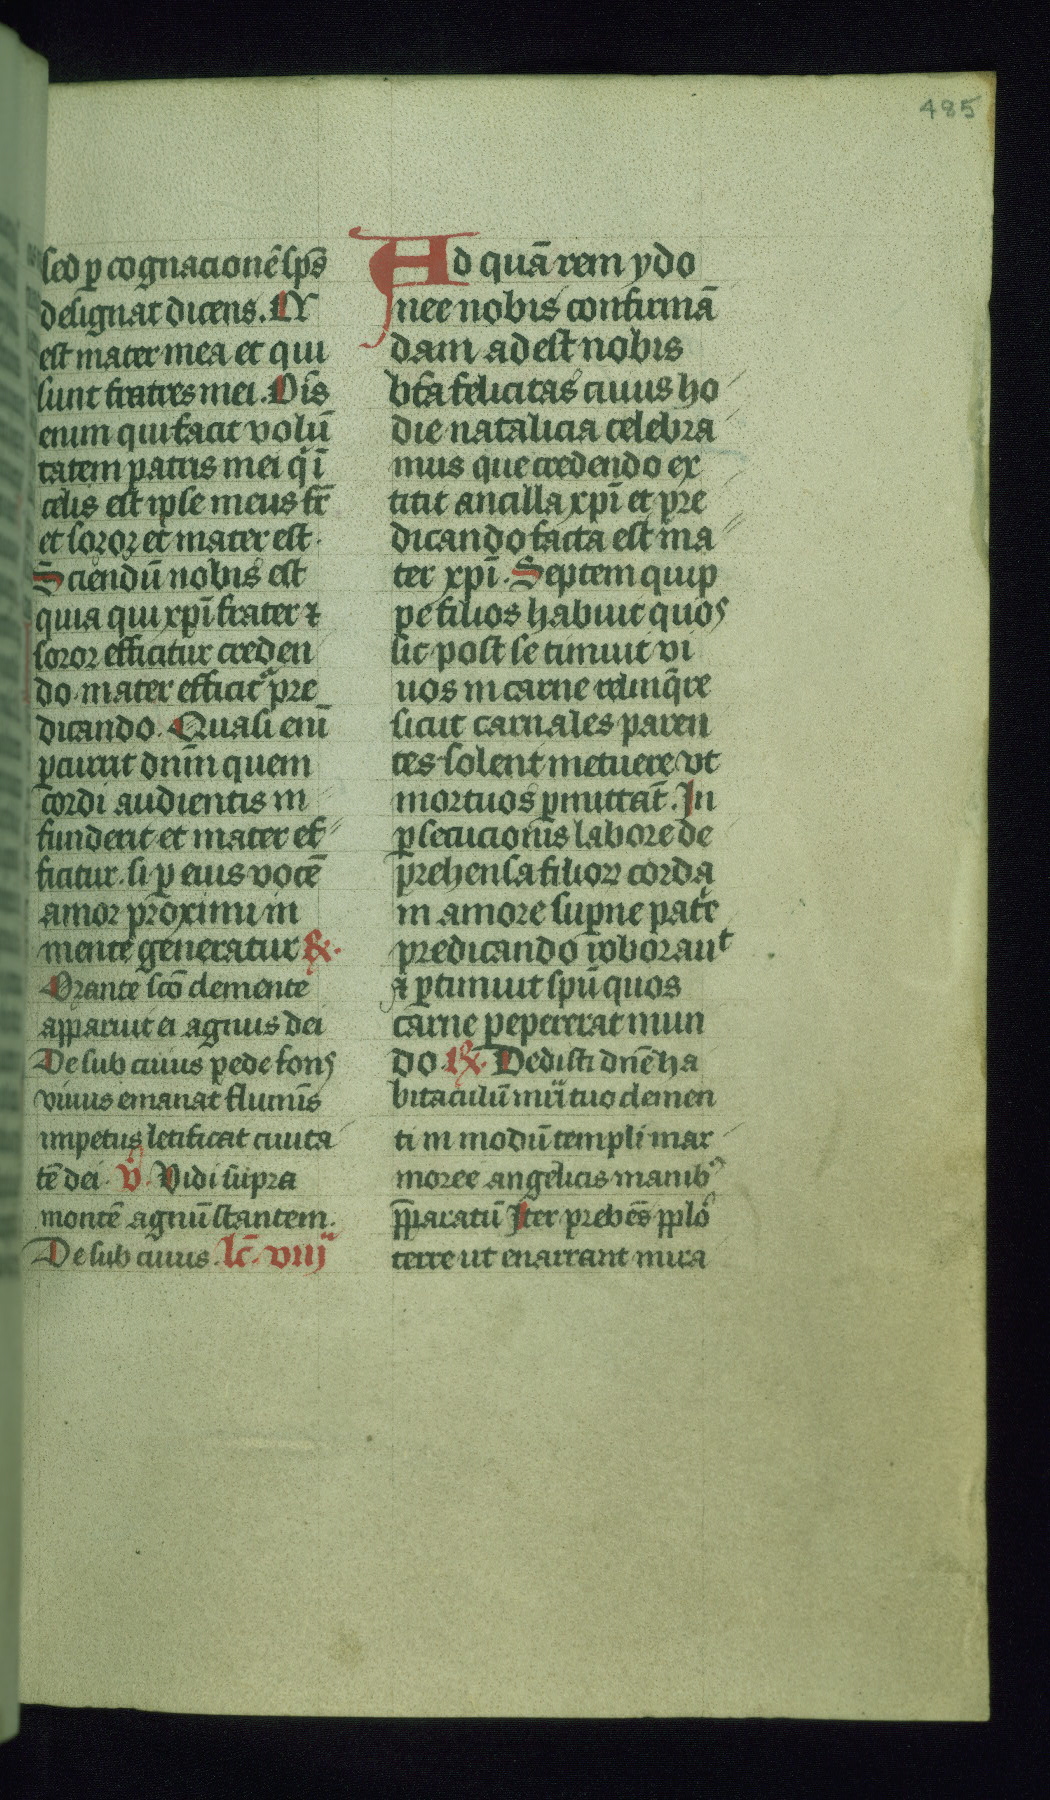 485
sed ꝑ cognacionē sp̄s
designat dicens. Hec
est mater mea et qui
sunt fratres mei. Om̄s
enim qui facit volū
tatem patris mei q̄ ī
celis est ipse meus fr̄
et soror et mater est.
Sciendū nobis est
quia qui xp̄i frater ⁊
soror efficitur creden
do. mater efficit᷑ pre
dicando. Quasi enī
ꝑturit dn̄m quem
cordi audientis in
fuderit et mater ef
ficitur. si ꝑ eius vocē
amor proximi in
mente generatur ℟.
Orante sc̄o clemente
apparuit ei agnus dei
De sub cuius pede fons
viuus emanat flumīs
impetus letificat ciuita
tē dei. ℣. Vidi supra
montē agnū stantem.
De sub cuius. lc̄. viij
Ad quā rem ydo
nee nobis confirmā
dam adest nobis
bt̄a felicitas cuius ho
die natalicia celebra
mus que credendo ex
titit ancilla xp̄i et pre
dicando facta est ma
ter xp̄i. Septem quip
pe filios habuit quos
sic post se timuit vi
uos in carne relinq̄re
sicut carnales paren
tes solent metuere vt
mortuos p̄mittāt. In
ꝑsecucionis labore de
prehensa filioꝝ corda
in amore suꝑne patr̄e
predicando roborauit
⁊ ꝑturiuit spū quos
carne pepererat mun
do. ℟. Dedisti dn̄e ha
bitaculū mr̄i tuo clemen
ti in modū templi mar
moree angelicis manib᷒
p̄paratū Iter prebēs pp̄lo
terre ut enarrant mira